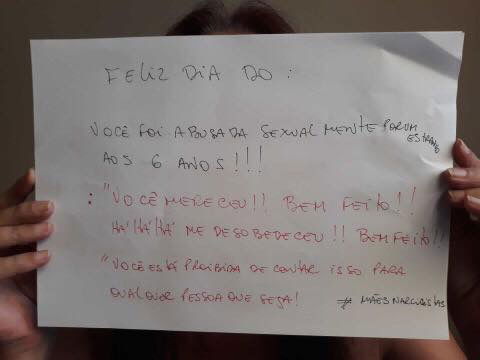 FELIZ DIA DO :
VOCÊ FOI ABUSADA SEXUALMENTE POR UM ESTRANHO
AOS 6 ANOS!!!
: "VOCÊ MERECEU!! BEM FEITO!!
HÁ HÁ HÁ ME DESOBEDECEU!! BEM FEITO!!
"VOCÊ ESTÁ PROIBIDA DE CONTAR ISSO PARA
QUALQUER PESSOA QUE SEJA!
# MÃES NARCISISTAS